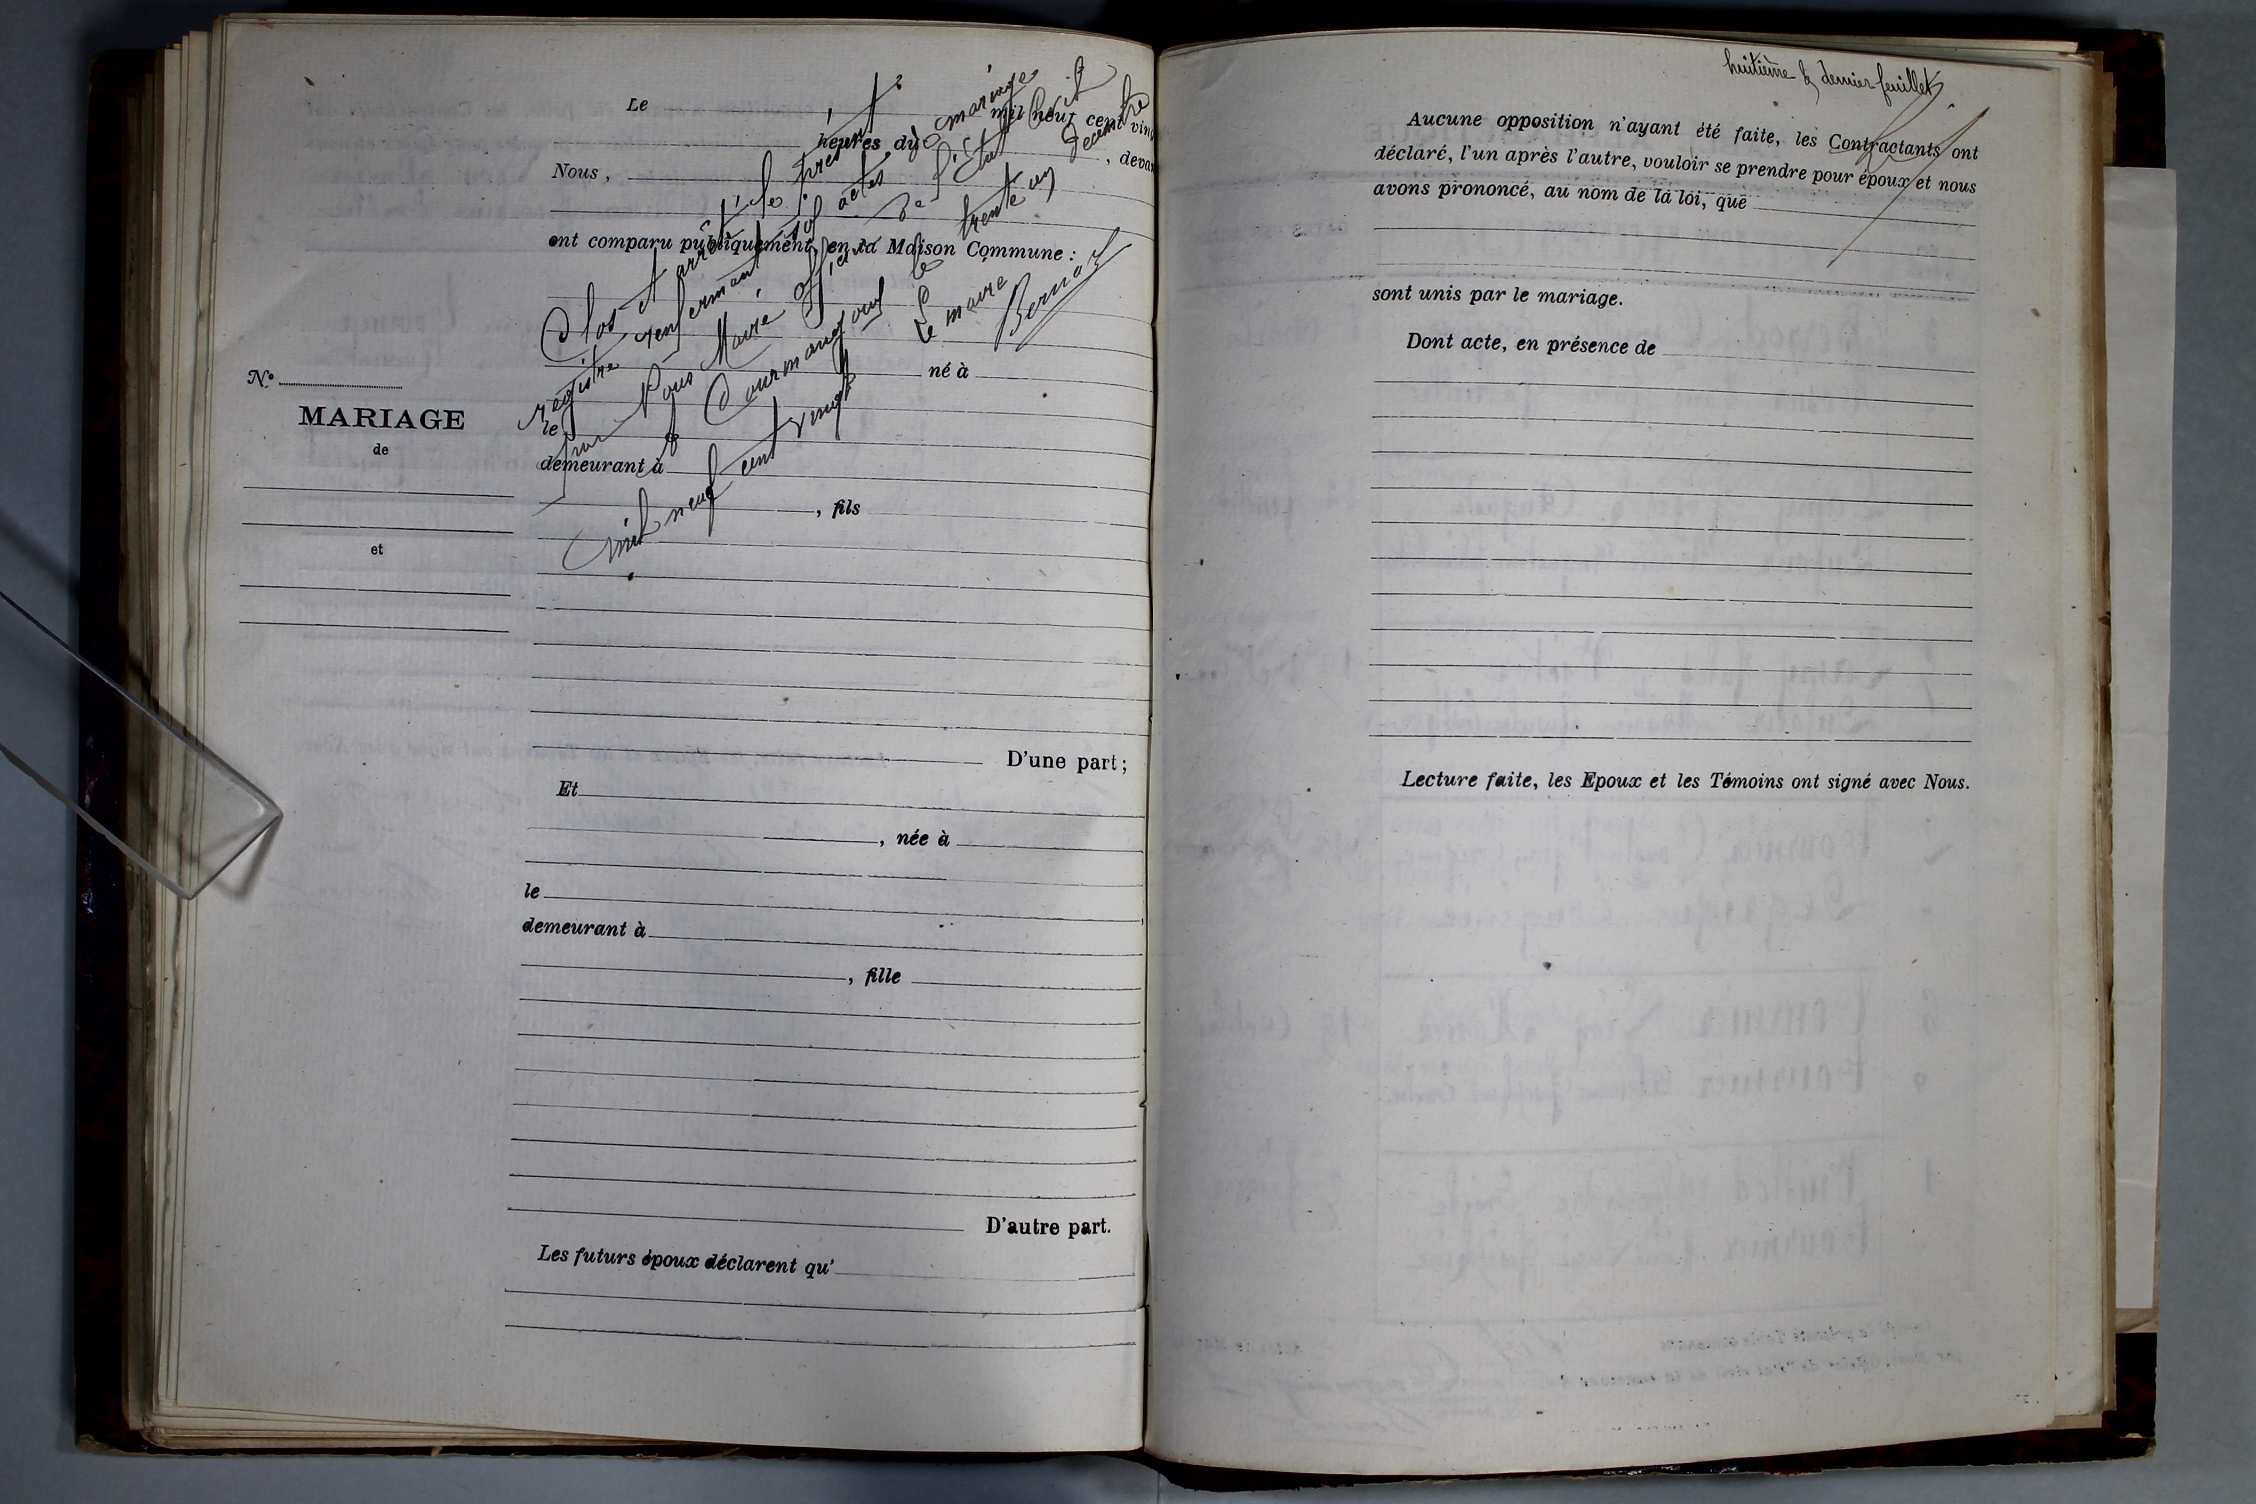 Le
mil neuf cent vin
heures du
Nous,
, devan
ont comparu publiquement en la Maison Commune :
Clos et arrêté le présent
registre renfermant sof actes de mariage
par Nous Maire officier de l'état Civil
de Courmangoux le trente un décembre
mil neuf cent vingt
Le maire
Bernoz
né à
le
demeurant à
, fils
N°
MARIAGE
de
et
D'une part ;
Et
, née à
le
demeurant à
, fille
D'autre part.
Les futurs époux déclarent qu'
huitième & dernier feuillet
Aucune opposition n'ayant été faite, les Contractants ont
déclaré, l'un après l'autre, vouloir se prendre pour époux et nous
avons prononcé, au nom de la loi, que
sont unis par le mariage.
Dont acte, en présence de
Lecture faite, les Epoux et les Témoins ont signé avec Nous.